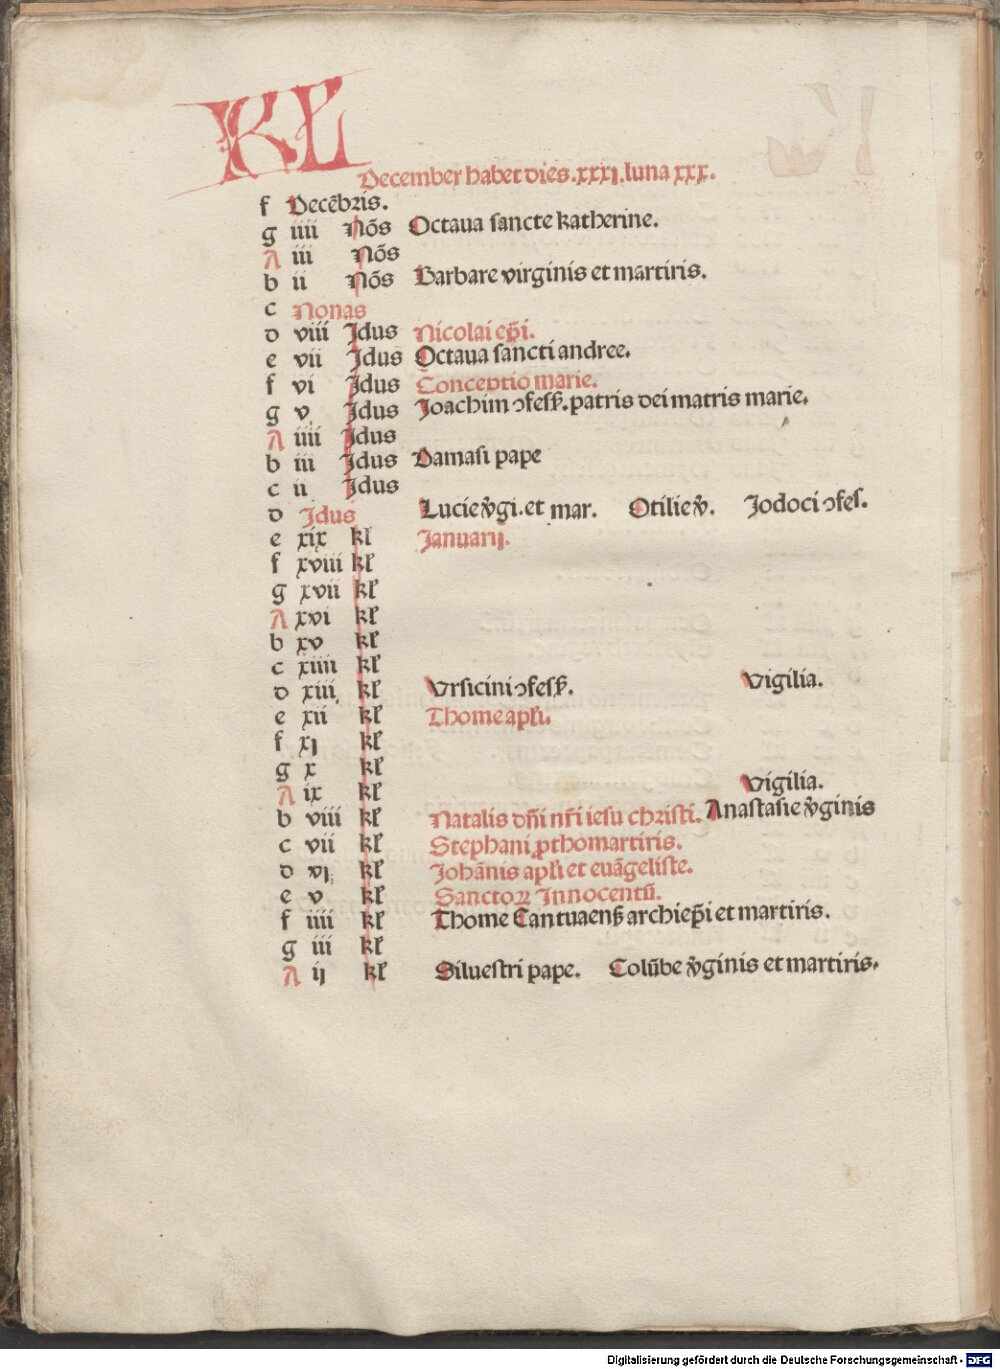 KL
December habet dies .xxxi. luna xxx.
f Decēbris.
g iiii Nōs Octaua sancte katherine.
A iii Nōs
b ii Nōs Barbare virginis et martiris.
c Nonas
d viii Jdus Nicolai ep̄i.
e vii Jdus Octaua sancti andree.
f vi Jdus Conceptio marie.
g v Jdus Joachim ↄfess̄. patris dei matris marie.
A iiii Jdus
b iii Jdus Damasi pape
c ii Jdus
d Jdus Lucie v̄gi. et mar. Otilie v̄. Jodoci ↄfes.
e xix kl Januarij.
f xviii kl
g xvii kl
A xvi kl
b xv kl
c xiiii kl
d xiii kl Vrsicini ↄfess̄. Vigilia.
e xii kl Thome apl̄i.
f xj kl
g x kl
A ix kl Vigilia.
b viii kl Natalis dn̄i nr̄i iesu christi. Anastasie v̄ginis
c vii kl Stephani ꝓthomartiris.
d vj kl Johānis apl̄i et euāgeliste.
e v kl Sanctoꝝ Innocentū.
f iiii kl Thome Cantuaens̄ archiep̄i et martiris.
g iii kl
A ij kl Siluestri pape. Colūbe v̄ginis et martiris.
Digitalisierung gefördert durch die Deutsche Forschungsgemeinschaft - DFG